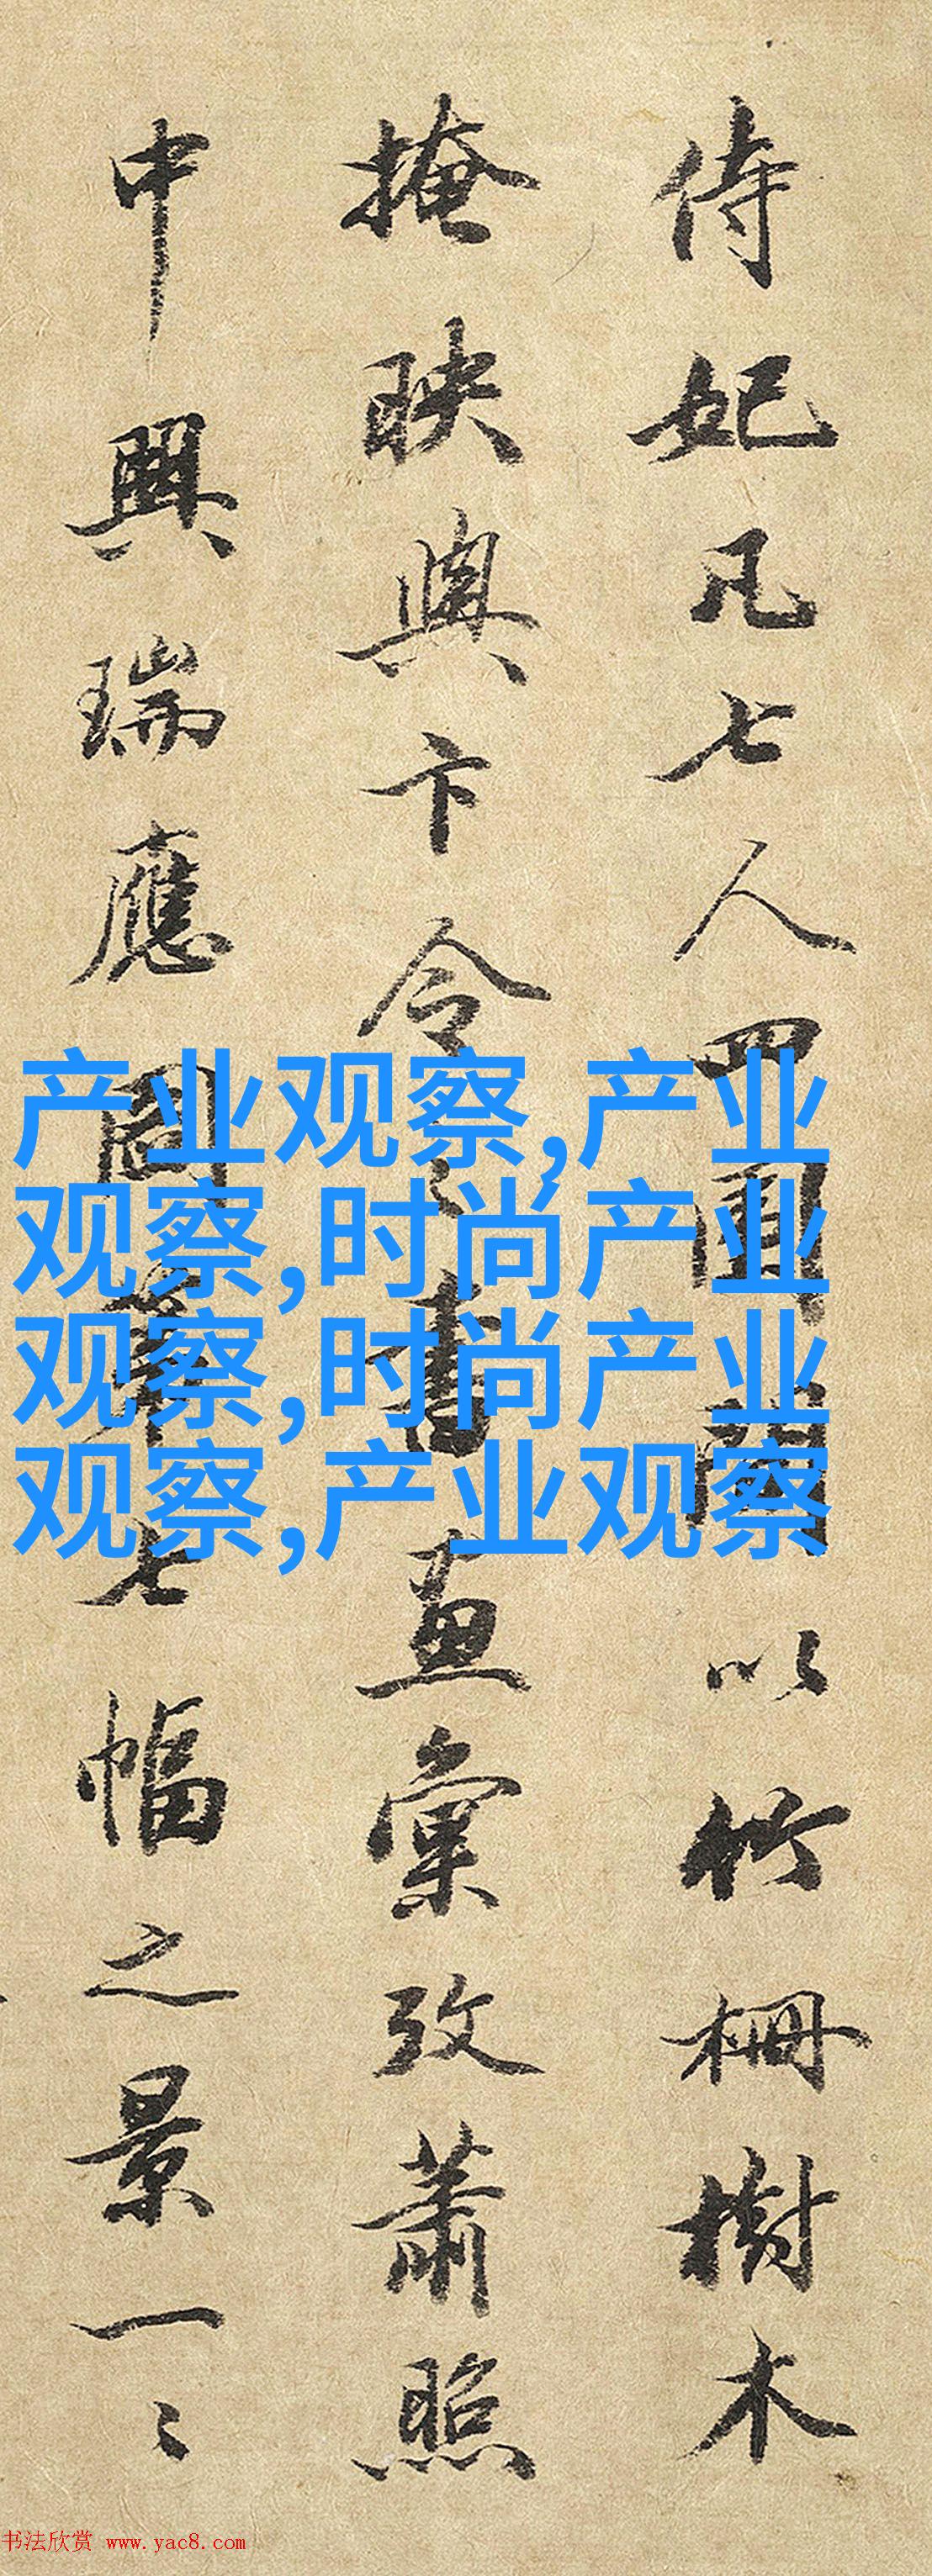 侍妃凡七人四圍闌以竹柵樹木
掩映與卞令之書畫彙攷蕭照
中興瑞應圖第七幅之景一〻
产业观察,产业
观察,时尚产业
观察,时尚产业
观察,产业观察
书法欣赏 www.yac8.com